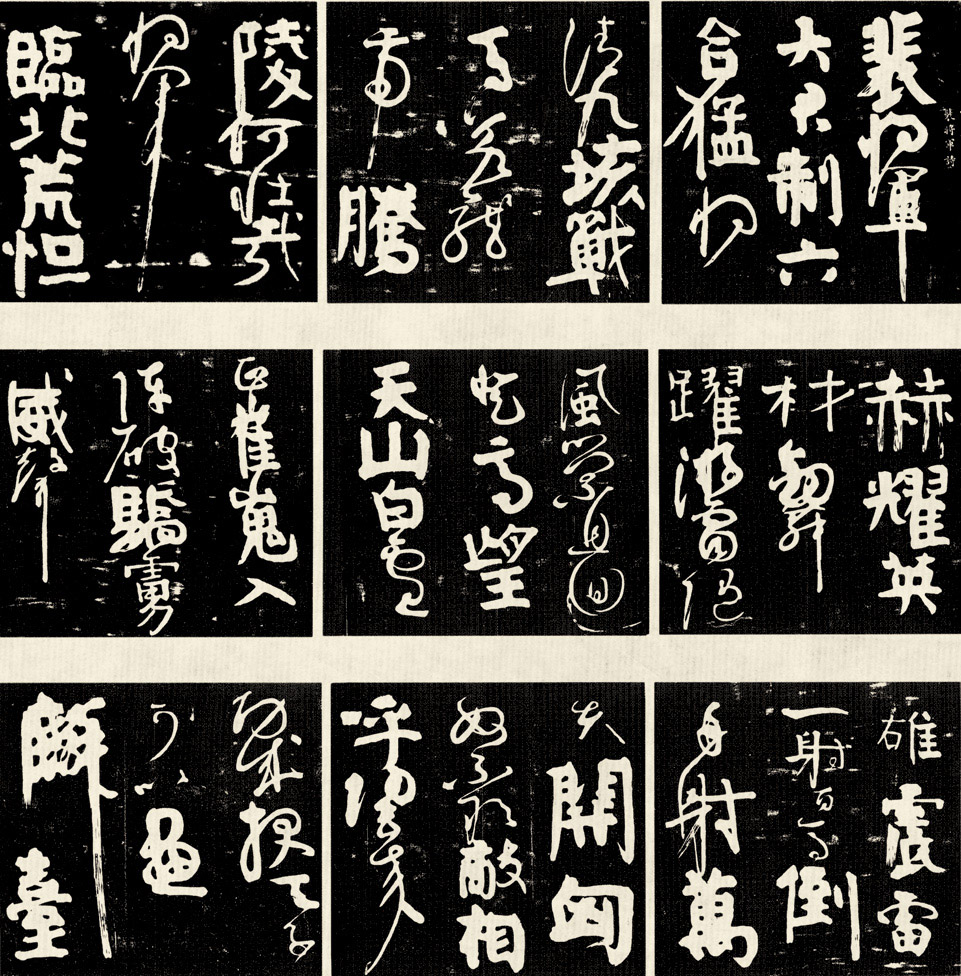 裴將軍詩
裴將軍
大君制六
合猛將
清九垓戰
馬若龍
虎騰
陵何壯哉
將軍
臨北荒烜
赫耀英
材劍舞
躍游電隨
風縈且迴
登高望
天山白雲
正崔嵬入
陣破驕虜
威聲
雄震雷
一射百馬倒
再射萬
夫開匈
奴不敢敵相
呼歸去來
功成報天子
可以畫
麟臺